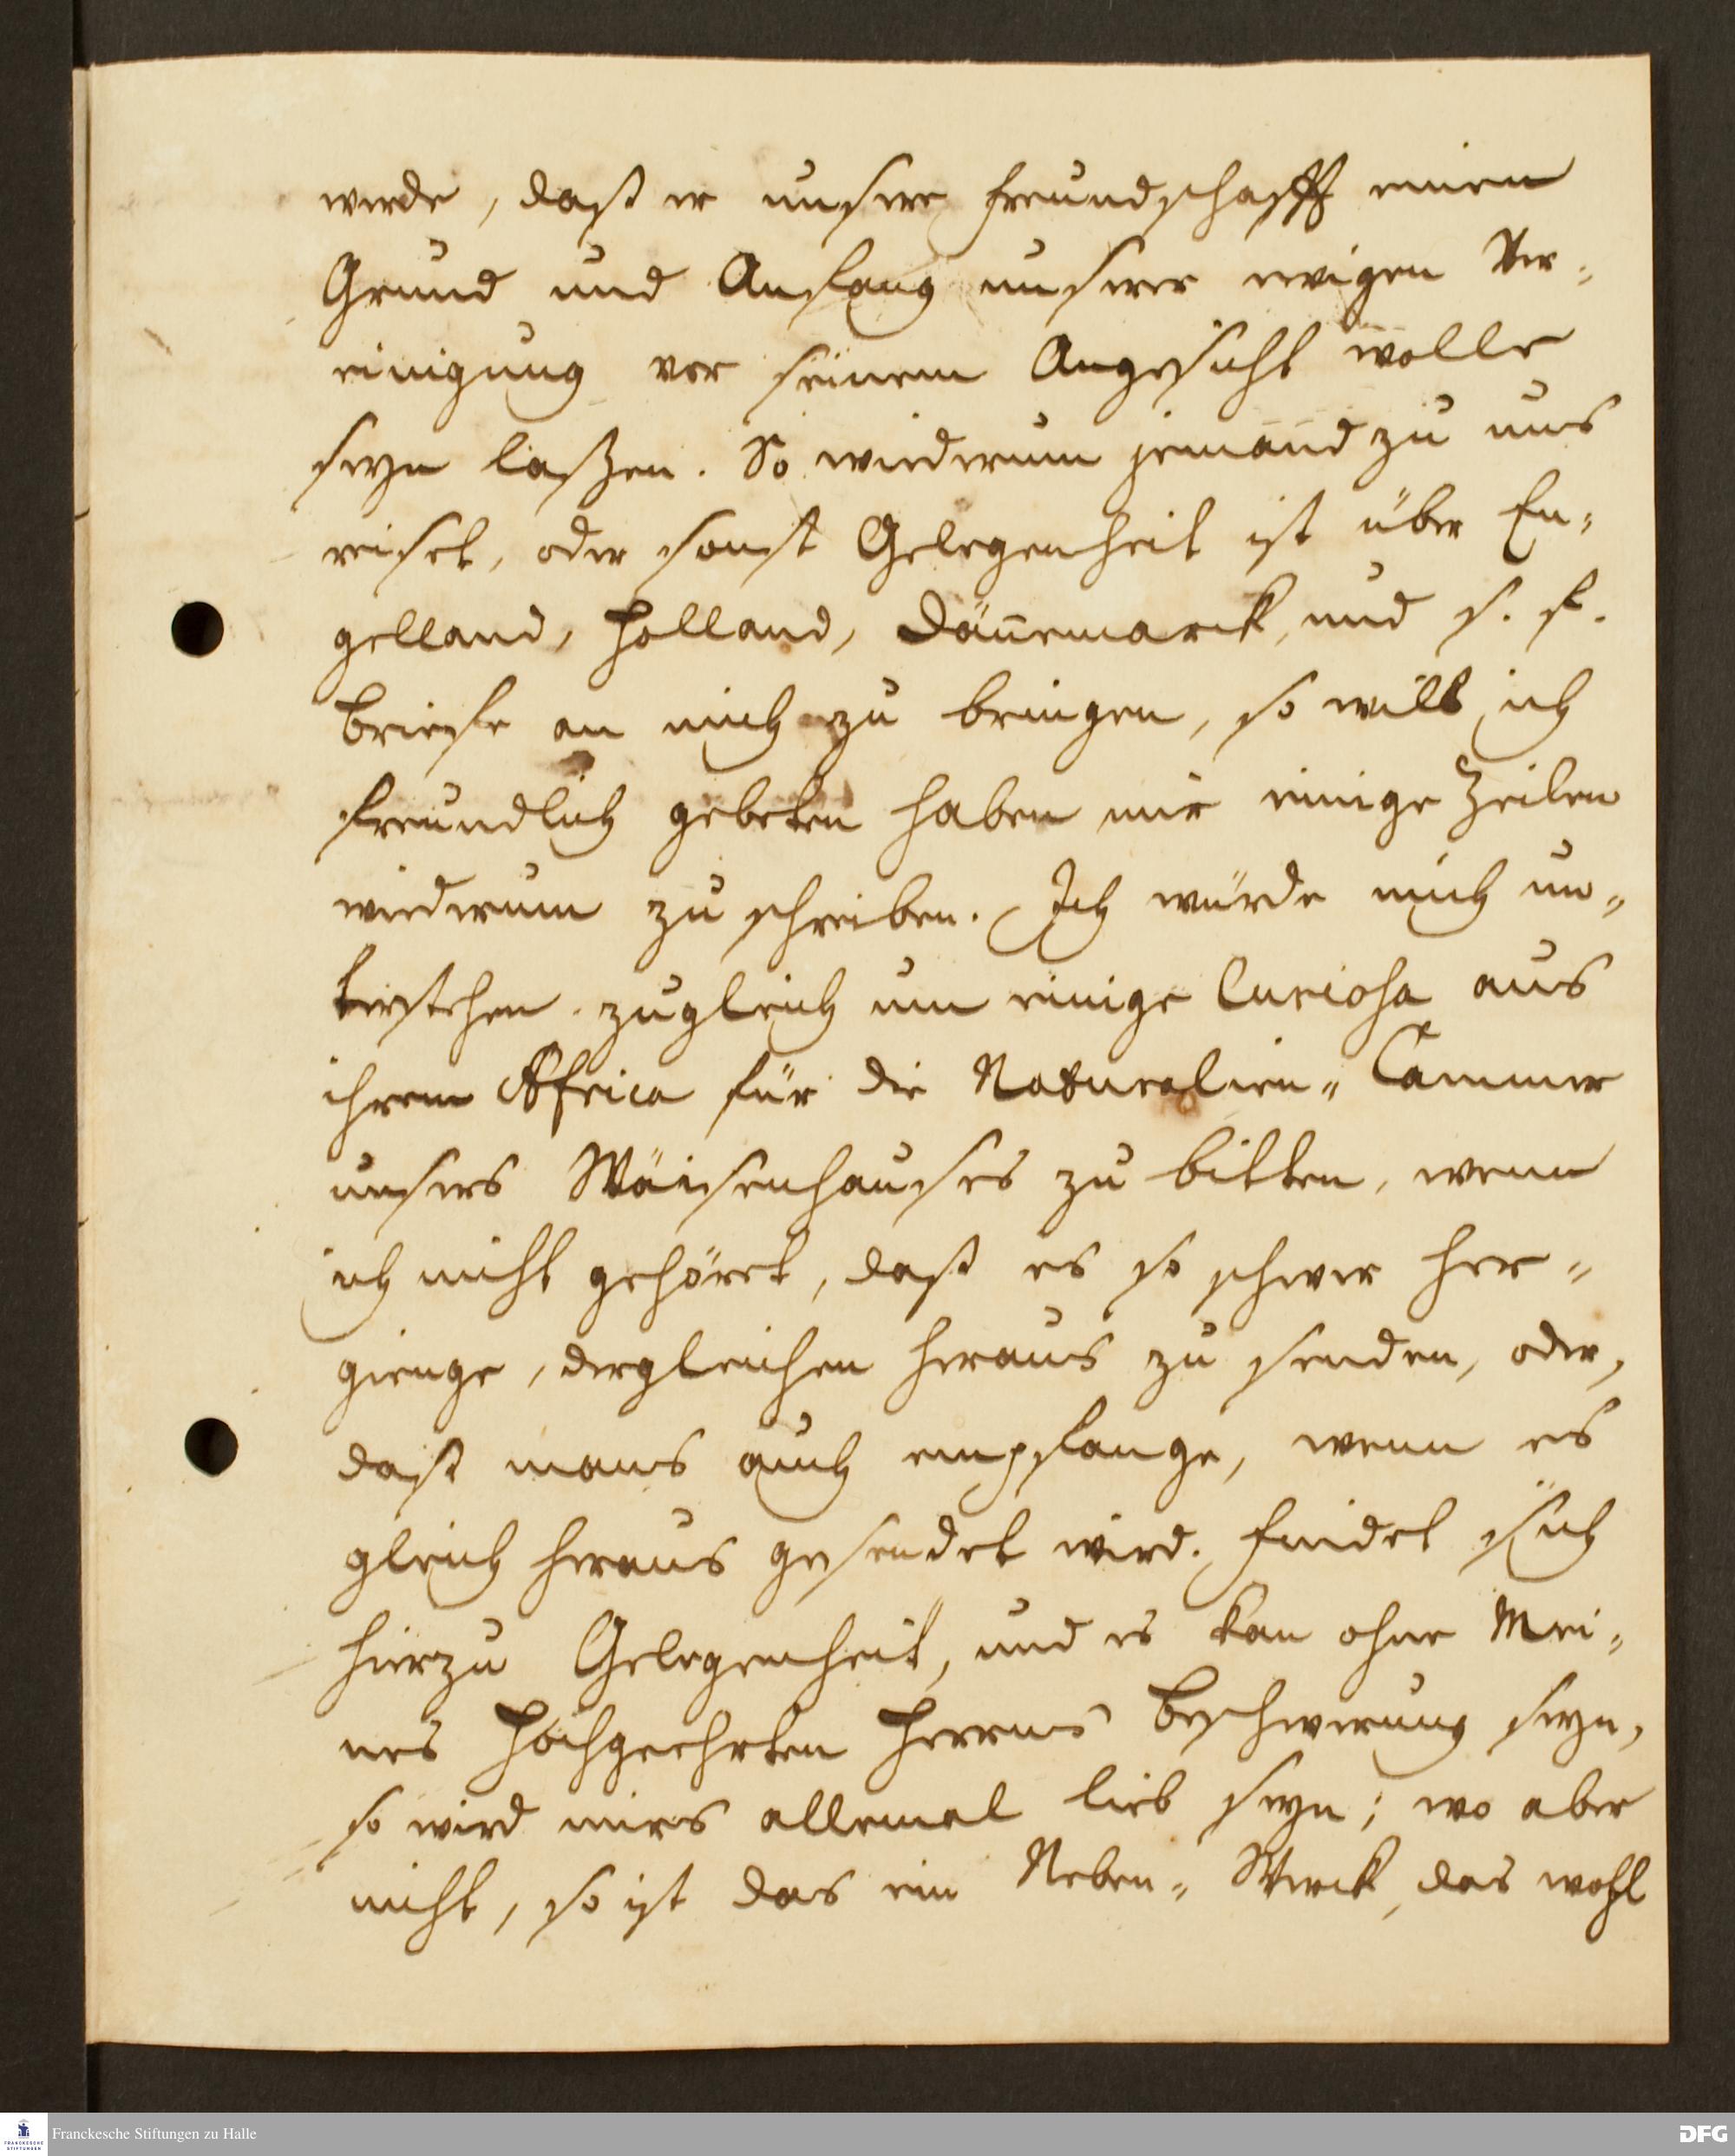 werde, daß er unsere freundschafft einen
Grund und Anfang unserer ewigen Ver-
einigung vor seinem Angesicht wolle
seyn laßen. So wiederum jemand zu uns
reiset, oder sonst Gelegenheit ist über En-
gelland, Holland, Dännemarck, und s. f.
briefe an mich zu bringen, so will ich
freundlich gebeten haben mir einige Zeilen
wiederum zu schreiben. Ich würde mich un-
terstehen zugleich um einige Curiosa aus
ihrem Africa für die Naturalien-Cammer
unsers Wäisenhauses zu bitten, wenn
ich nicht gehöret, daß es so schwer her-
gienge, dergleichen heraus zu senden, oder,
daß mans auch empfange, wenn es
gleich heraus gesendet wird. findet sich
hierzu Gelegenheit, und es kan ohne Mei-
nes Hochgeehrten Herrns beschwerung seyn,
so wird mirs allemal lieb seyn; wo aber
nicht, so ist das ein Neben-Werck, das wohl
Franckesche Stiftungen zu Halle
FRANCKESCHE
STIFTUNGEN
DFG